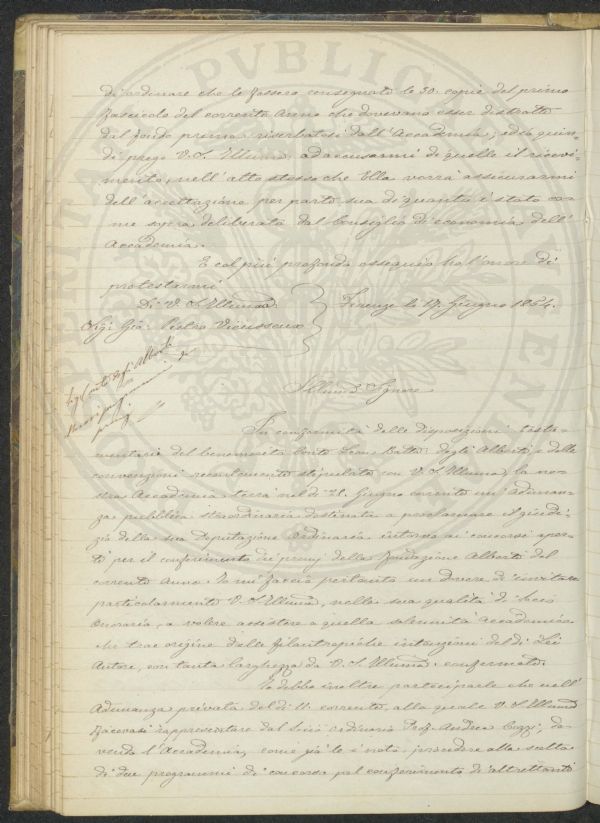 di ordinare che le fossero consegnate le 50. copie del primo
fascicolo del corrente Anno che dovevano esser distratte
dal fondo prima riserbatosi dall'Accademia; ed io quin-
di prego V. S. Illma ad accusarmi di quelle il ricevi-
mento, nell'atto stesso che Ella vorrà assicurarmi
dell'accettazione per parte sua di quanto è stato co-
me sopra deliberato dal Consiglio di economia dell'
Accademia.
E col più profondo ossequio ho l'onore di
protestarmi
Di V. S. Illma
Firenze li 17. Giugno 1864.
Sigr Gio: Pietro Vieusseux
Sig Conte degli Alberti
Illmo Signore
In conformità delle disposizioni testa-
mentarie del benemerito Conte Leon Batta degli Alberti, e delle
convenzioni recentemente stipulate con V. S. Illma, la no-
stra Accademia terrà nel dì Giugno corrente un'adunan-
za pubblica straordinaria destinata a proclamare i giudi-
zj della sua Deputazione ordinaria intorno ai concorsi aper-
ti per il conferimento dei premj della fondazione Alberti del
corrente Anno. Io mi faccio pertanto un dovere di invitare
particolarmente V. S. Illma, nella sua qualità di Socio
Onorario, a volere assistere a quella solennità accademica
che trae origine dalle filantropiche intenzioni del di Lei
Autore, con tanta larghezza da V. S. Illma confermate.
Io debbo inoltre parteciparle che nell'
Adunanza privata del dì corrente, alla quale V. S. Illma
facevasi rappresentare dal Socio ordinario Andrea do-
vendo l'Accademia, come già le è noto, procedere alla scelta
di due programmi di concorso pel conferimento di altrettanti